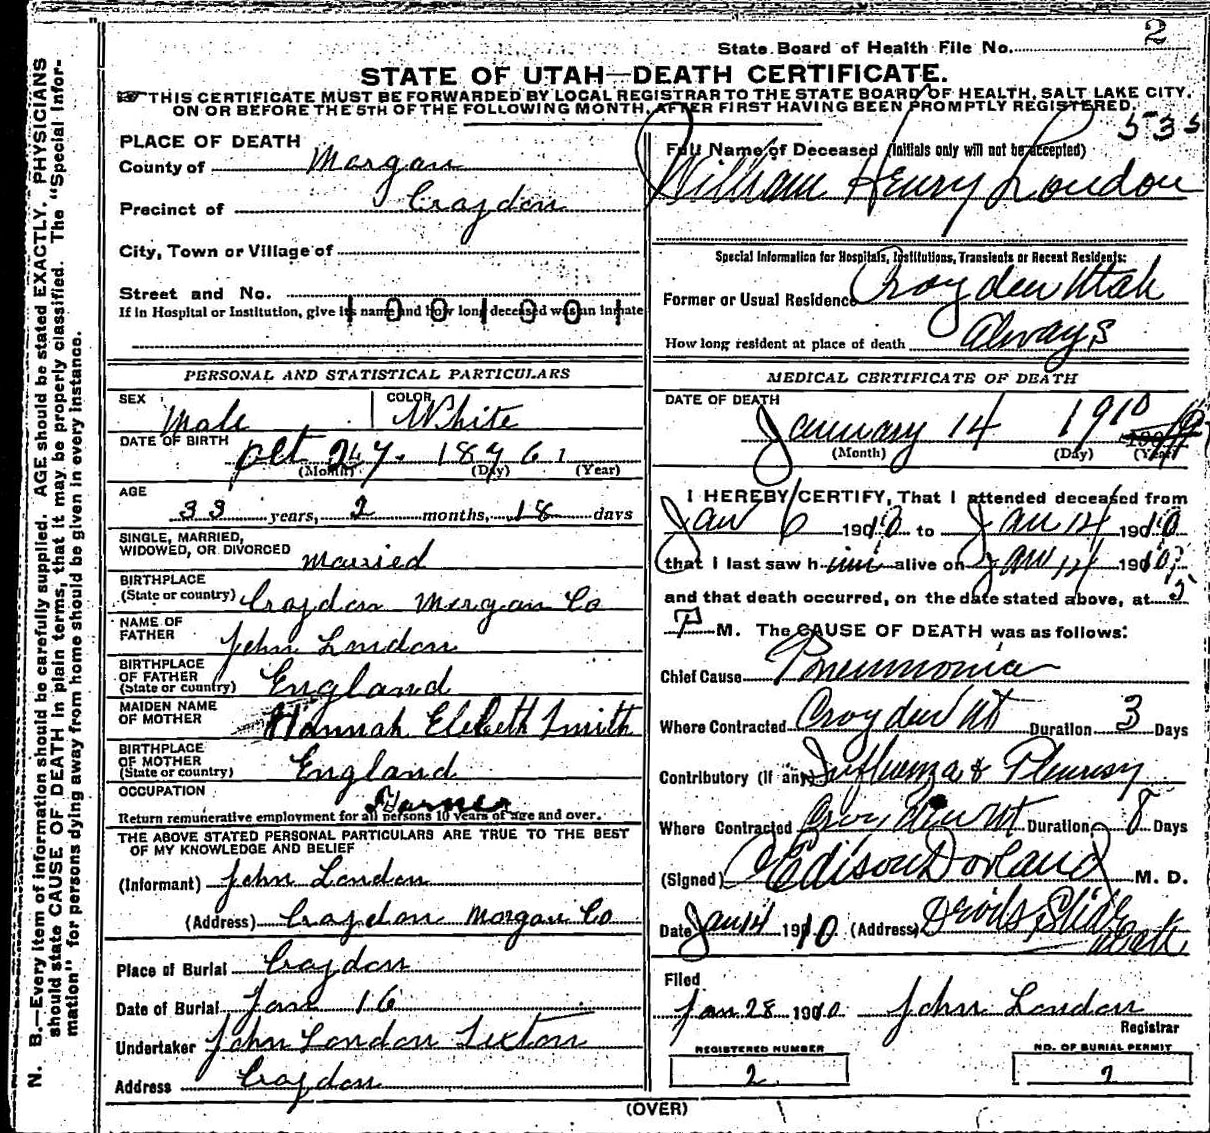 State Board of Health File No. 2
STATE OF UTAH—DEATH CERTIFICATE.
☞ THIS CERTIFICATE MUST BE FORWARDED BY LOCAL REGISTRAR TO THE STATE BOARD OF HEALTH, SALT LAKE CITY,
ON OR BEFORE THE 5TH OF THE FOLLOWING MONTH, AFTER FIRST HAVING BEEN PROMPTLY REGISTERED.
N. B.—Every item of information should be carefully supplied. AGE should be stated EXACTLY. PHYSICIANS
should state CAUSE OF DEATH in plain terms, that it may be properly classified. The "Special Infor-
mation" for persons dying away from home should be given in every instance.
PLACE OF DEATH
County of Morgan
Precinct of Croydon
City, Town or Village of
Street and No.
If in Hospital or Institution, give its name and how long deceased was an inmate
1001001
PERSONAL AND STATISTICAL PARTICULARS
SEX Male COLOR White
DATE OF BIRTH
(Month) (Day) (Year)
AGE
33 years, 2 months, 18 days
SINGLE, MARRIED,
WIDOWED, OR DIVORCED married
BIRTHPLACE
(State or country) Croydon Morgan Co
NAME OF
FATHER John London
BIRTHPLACE
OF FATHER
(State or country) England
MAIDEN NAME
OF MOTHER Hannah Elebeth Smith
BIRTHPLACE
OF MOTHER
(State or country) England
OCCUPATION
Farmer
Return remunerative employment for all persons 10 years of age and over.
THE ABOVE STATED PERSONAL PARTICULARS ARE TRUE TO THE BEST
OF MY KNOWLEDGE AND BELIEF
(Informant) John London
(Address) Croydon Morgan Co
Place of Burial Croydon
Date of Burial Jan 16
Undertaker John London Sexton
Address Croydon
535
Full Name of Deceased (Initials only will not be accepted)
William Henry London
Special Information for Hospitals, Institutions, Transients or Recent Residents:
Former or Usual Residence Croyden Utah
How long resident at place of death Always
MEDICAL CERTIFICATE OF DEATH
DATE OF DEATH
January 14 1910
(Month) (Day) (Year)
I HEREBY CERTIFY, That I attended deceased from
Jan 6 1910 to Jan 14 1910
that I last saw him alive on Jan 14 1910,
and that death occurred, on the date stated above, at 5
P M. The CAUSE OF DEATH was as follows:
Chief Cause Pneumonia
Where Contracted Croyden Ut Duration 3 Days
Contributory (If any) Influenza & Pleurisy
Where Contracted Croyden Ut Duration 8 Days
(Signed) Edison Dorland M. D.
Date Jan 14 1910 (Address) Devils Slide Utah
Filed
Jan 28 1910 John London
Registrar
REGISTERED NUMBER
2
NO. OF BURIAL PERMIT
2
(OVER)